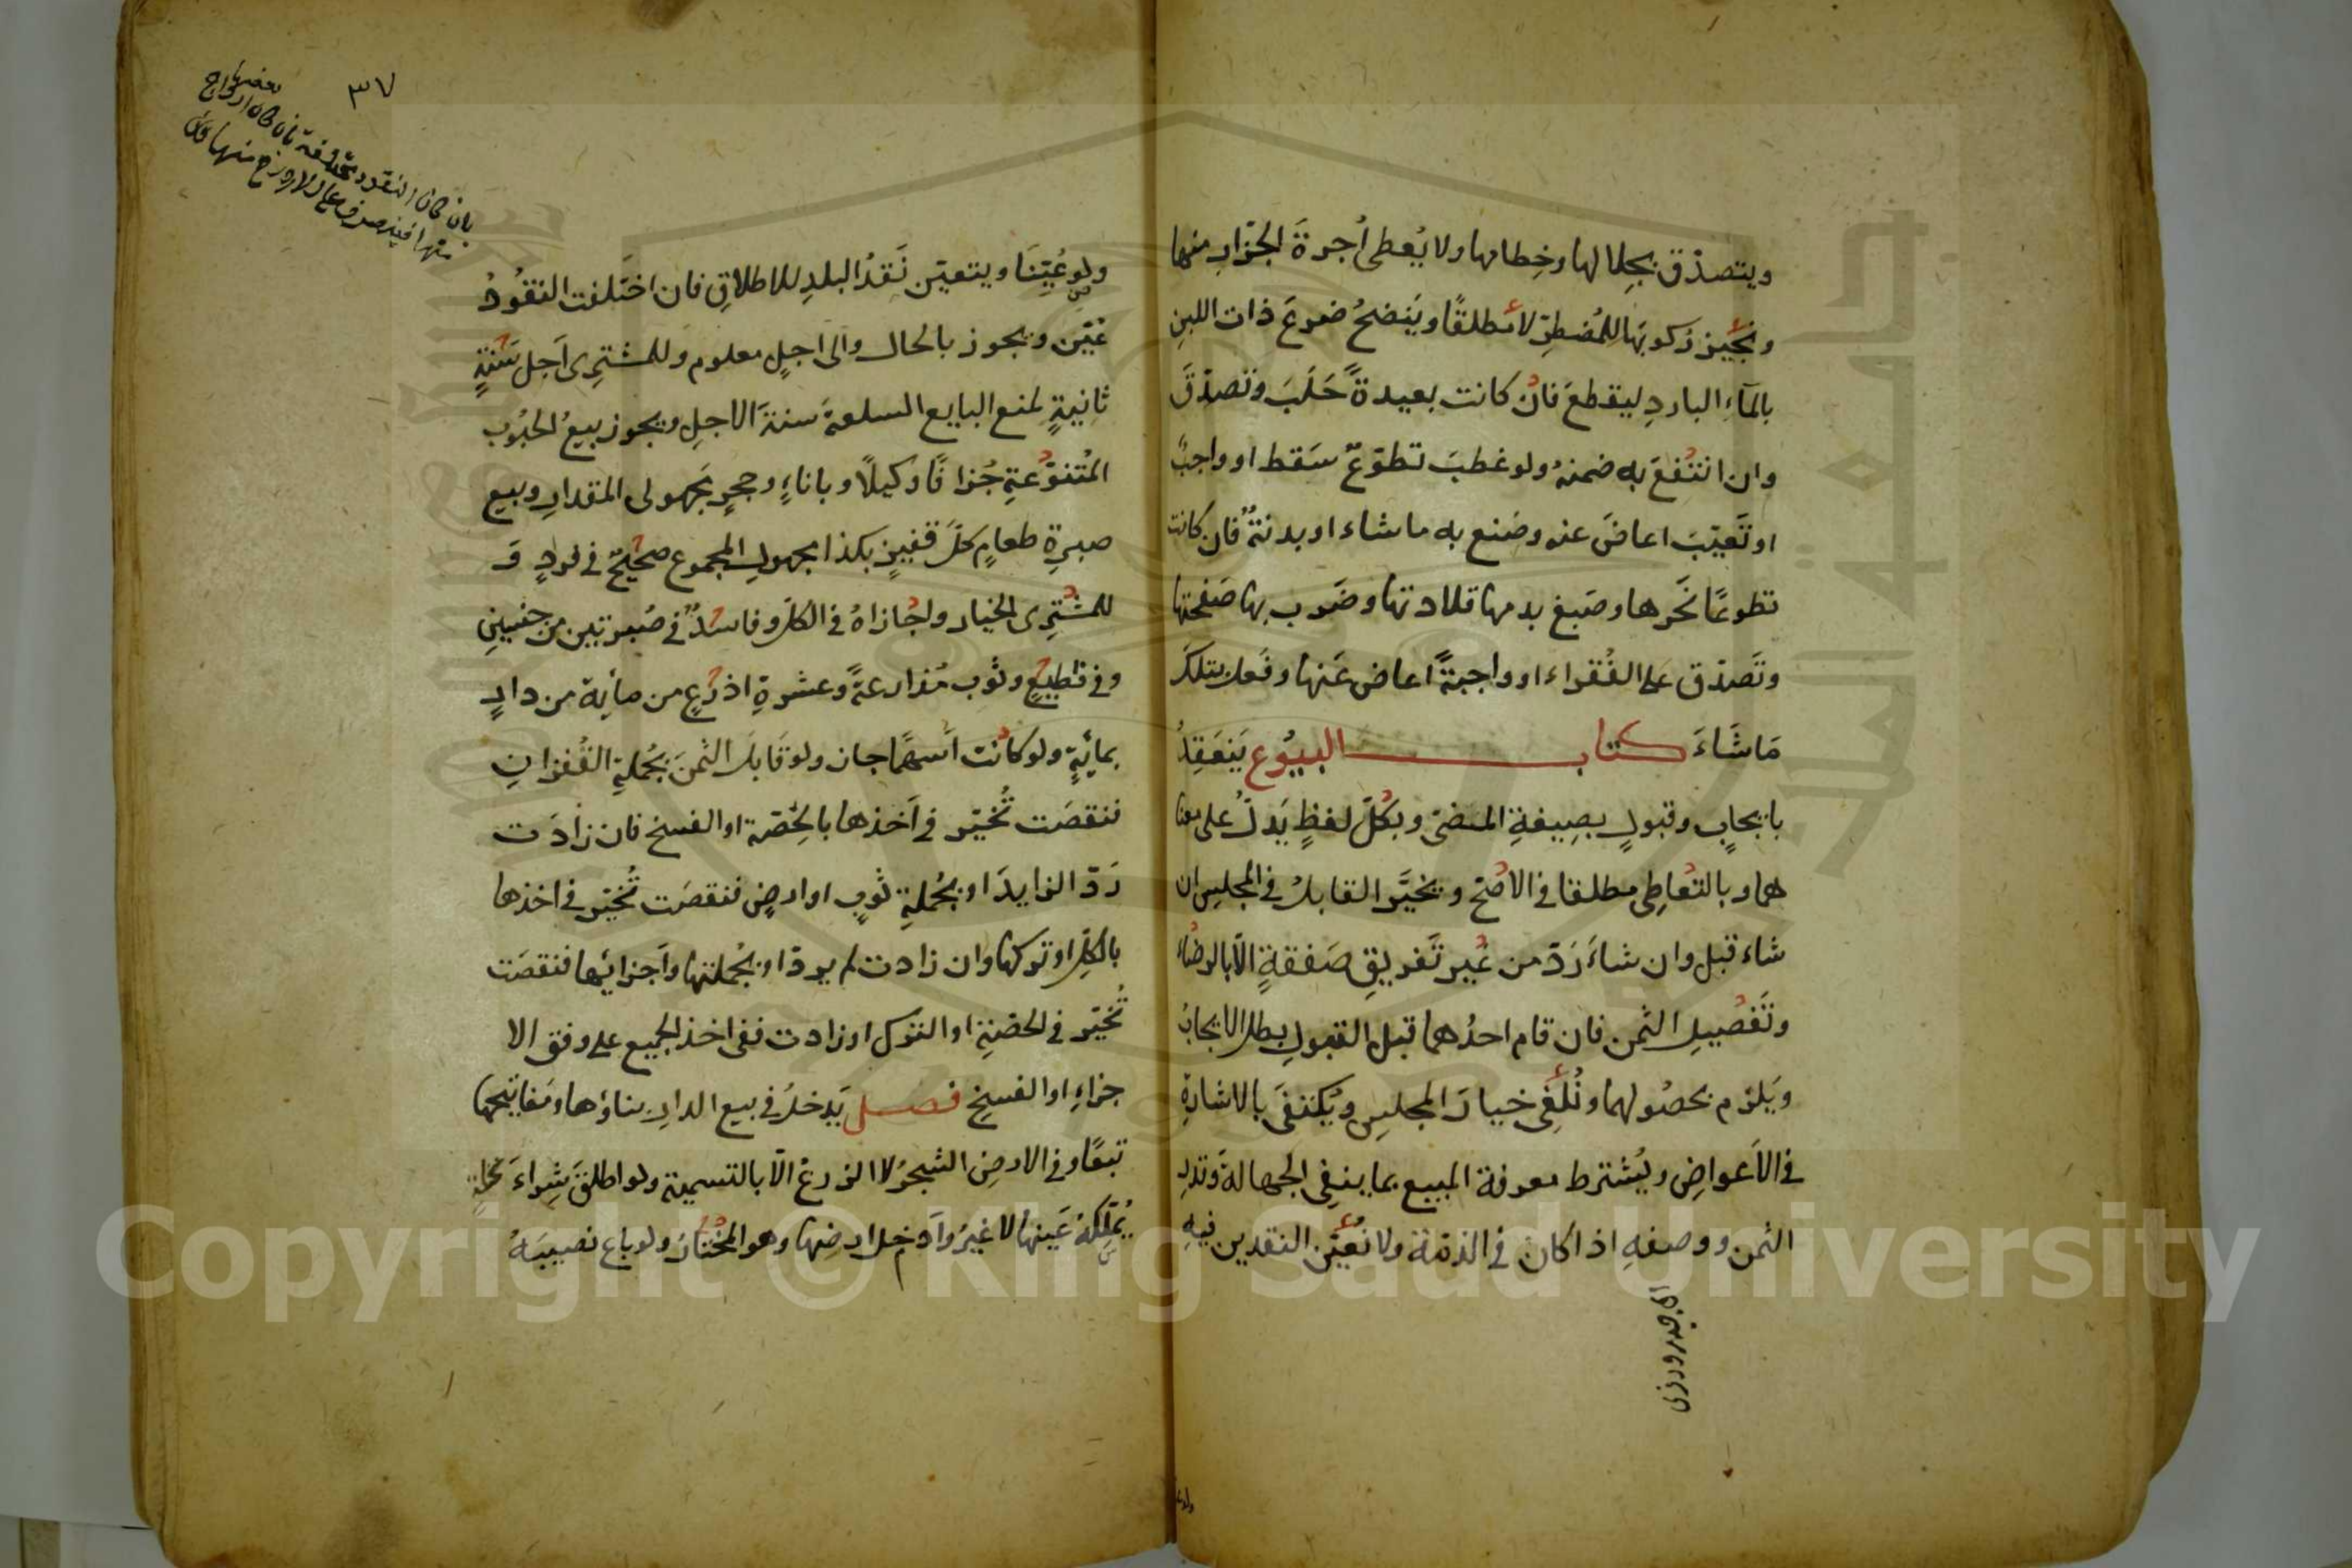 ويتصدّق بجِلالها وخِطامها ولا يُعطى أُجرةَ الجزّارِ منها
ونُجيز رُكوبَها للمُضطرّ لا مُطلقًا ويَنضحُ ضرعَ ذات اللبنِ
بالمآءِ الباردِ ليقطعَ فان كانت بعيدةً حَلَبَ وتصدّقَ
وان انتفعَ به ضمنهُ ولو عَطِبَ تطوّعٌ سَقط او واجبٌ
او تَعيّبَ اعاضَ عنه وصَنع به ما شاء او بدنةٌ فان كانت
تطوعًا نَحَرها وصَبغ بدمها قلادتها وضَرب بها صَفحتها
وتَصدّق على الفُقراء او واجبةً اعاض عَنها وفَعل بتلكَ
مَا شَاءَ كتاب البيُوع يَنعَقِدُ
بايجابٍ وقبولٍ بصِيغةِ المضىّ وبكُلّ لفظٍ يَدلّ على معنا
هما وبالتعاطِى مطلقا فى الاصّح ويخيَّر القابلُ فى المجلسِ ان
شاء قبل وان شاءَ رَدّ من غير تَفريقِ صَفقةٍ الّا بالرضاء
وتَفصيلِ الثمن فان قام احدُهما قبل القبولِ بطل الايجابُ
ويَلزم بحصُولهما ونُلغِى خيارَ المجلسِ ويُكتفَى بالاشارةِ
فى الاَعواضِ ويُشترط معرفة المبيع بما ينفِى الجهالةَ وقدرِ
الثمن ووصفهِ اذا كان فى الذمّة ولا نُعيّن النقدين فيهِ
٣٧
بان كان النقود مختلفة
منها فينصرف
ولو عُيّنَا ويتعيّن نَقدُ البلدِ للاطلاقِ فان اختَلفت النقُودُ
عُيّن ويجوز بالحال والى اجلٍ معلوم وللمشترِى اَجل سَنةٍ
ثانيةٍ لمنع البايع السلعةَ سنةَ الاجلِ ويجوز بيعُ الحبُوب
المُتنوّعةِ جُزافًا وكيلًا وباناءٍ وحجرٍ مَجهولى المقدارِ وبيع
صبرةِ طعامٍ كلّ قفيزٍ بكذا مجهولِ المجموع صحيحٌ فى فردٍ و
للمشترِى الخيار واجازاهُ فى الكلّ وفاسدٌ فى صُبرتين من جنسينِ
وفى قطيعٍ وثوب مُذارعةً وعشرةِ اذرُعٍ من مأية من دارٍ
بمايةٍ ولو كانت اَسهمًا جاز ولو قَابلَ الثمنَ بجُملةِ القُفزانِ
فنقصَت تُخيّر فى اَخذها بالحِصّة او الفسخ فان زادَت
رَدّ الزايدَ او بجُملةِ ثوبٍ او ارضٍ فنقصَت تُخيّر فى اخذها
بالكلّ او تركها وان زادت لم يردّ او بجُملتها واَجزائِها فنقصَت
تُخيّر فى الحصّةِ او التّرك او زادت ففى اخذ الجميع على وفق الا
جزاءِ او الفسخِ فصل يَدخلُ فى بيع الدارِ بناؤها ومَفاتيحُها
تبعًا وفى الارضِ الشجرُ لا الزرعُ الّا بالتسمية ولو اطلقَ شِراءَ نخلةٍ
يُملّكهُ عَينَها لا غيرُ واَدخل ارضِها وهو المُختارُ ولو باع نصيبَهُ